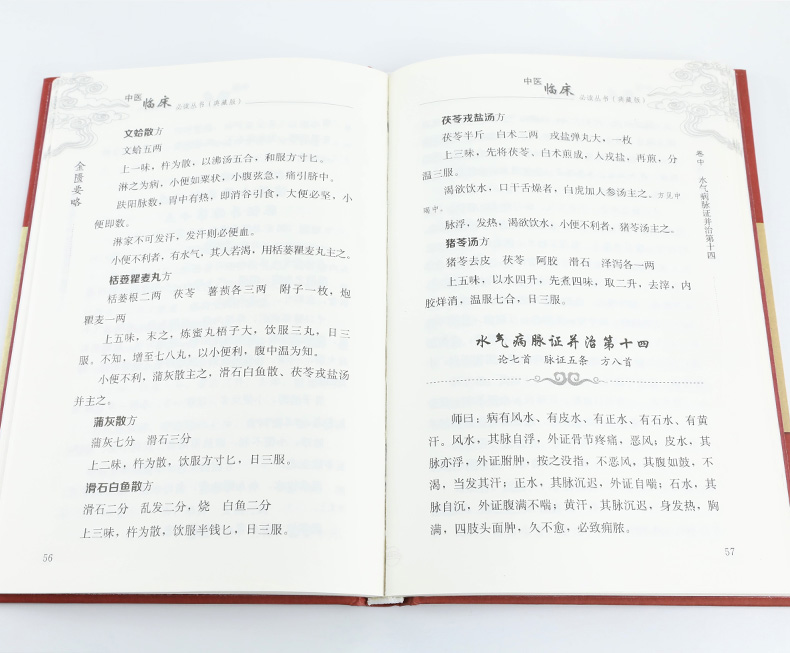 中医临床必读丛书(典藏版)
金匮要略
文蛤散方
文蛤五两
上一味，杵为散，以沸汤五合，和服方寸匕。
淋之为病，小便如粟状，小腹弦急，痛引脐中。
趺阳脉数，胃中有热，即消谷引食，大便必坚，小
便即数。
淋家不可发汗，发汗则必便血。
小便不利者，有水气，其人若渴，用栝蒌瞿麦丸主之。
栝蒌瞿麦丸方
栝蒌根二两 茯苓 薯蓣各三两 附子一枚，炮
瞿麦一两
上五味，末之，炼蜜丸梧子大，饮服三丸，日三
服。不知，增至七八丸，以小便利，腹中温为知。
小便不利，蒲灰散主之，滑石白鱼散、茯苓戎盐汤
并主之。
蒲灰散方
蒲灰七分 滑石三分
上二味，杵为散，饮服方寸匕，日三服。
滑石白鱼散方
滑石二分 乱发二分，烧 白鱼二分
上三味，杵为散，饮服半钱匕，日三服。
56
中医临床必读丛书(典藏版)
卷中 水气病脉证并治第十四
茯苓戎盐汤方
茯苓半斤 白术二两 戎盐弹丸大，一枚
上三味，先将茯苓、白术煎成，入戎盐，再煎，分
温三服。
渴欲饮水，口干舌燥者，白虎加人参汤主之。方见中
暍中。
脉浮，发热，渴欲饮水，小便不利者，猪苓汤主之。
猪苓汤方
猪苓去皮 茯苓 阿胶 滑石 泽泻各一两
上五味，以水四升，先煮四味，取二升，去滓，内
胶烊消，温服七合，日三服。
水气病脉证并治第十四
论七首 脉证五条 方八首
师曰：病有风水、有皮水、有正水、有石水、有黄
汗。风水，其脉自浮，外证骨节疼痛，恶风；皮水，其
脉亦浮，外证胕肿，按之没指，不恶风，其腹如鼓，不
渴，当发其汗；正水，其脉沉迟，外证自喘；石水，其
脉自沉，外证腹满不喘；黄汗，其脉沉迟，身发热，胸
满，四肢头面肿，久不愈，必致痈脓。
57